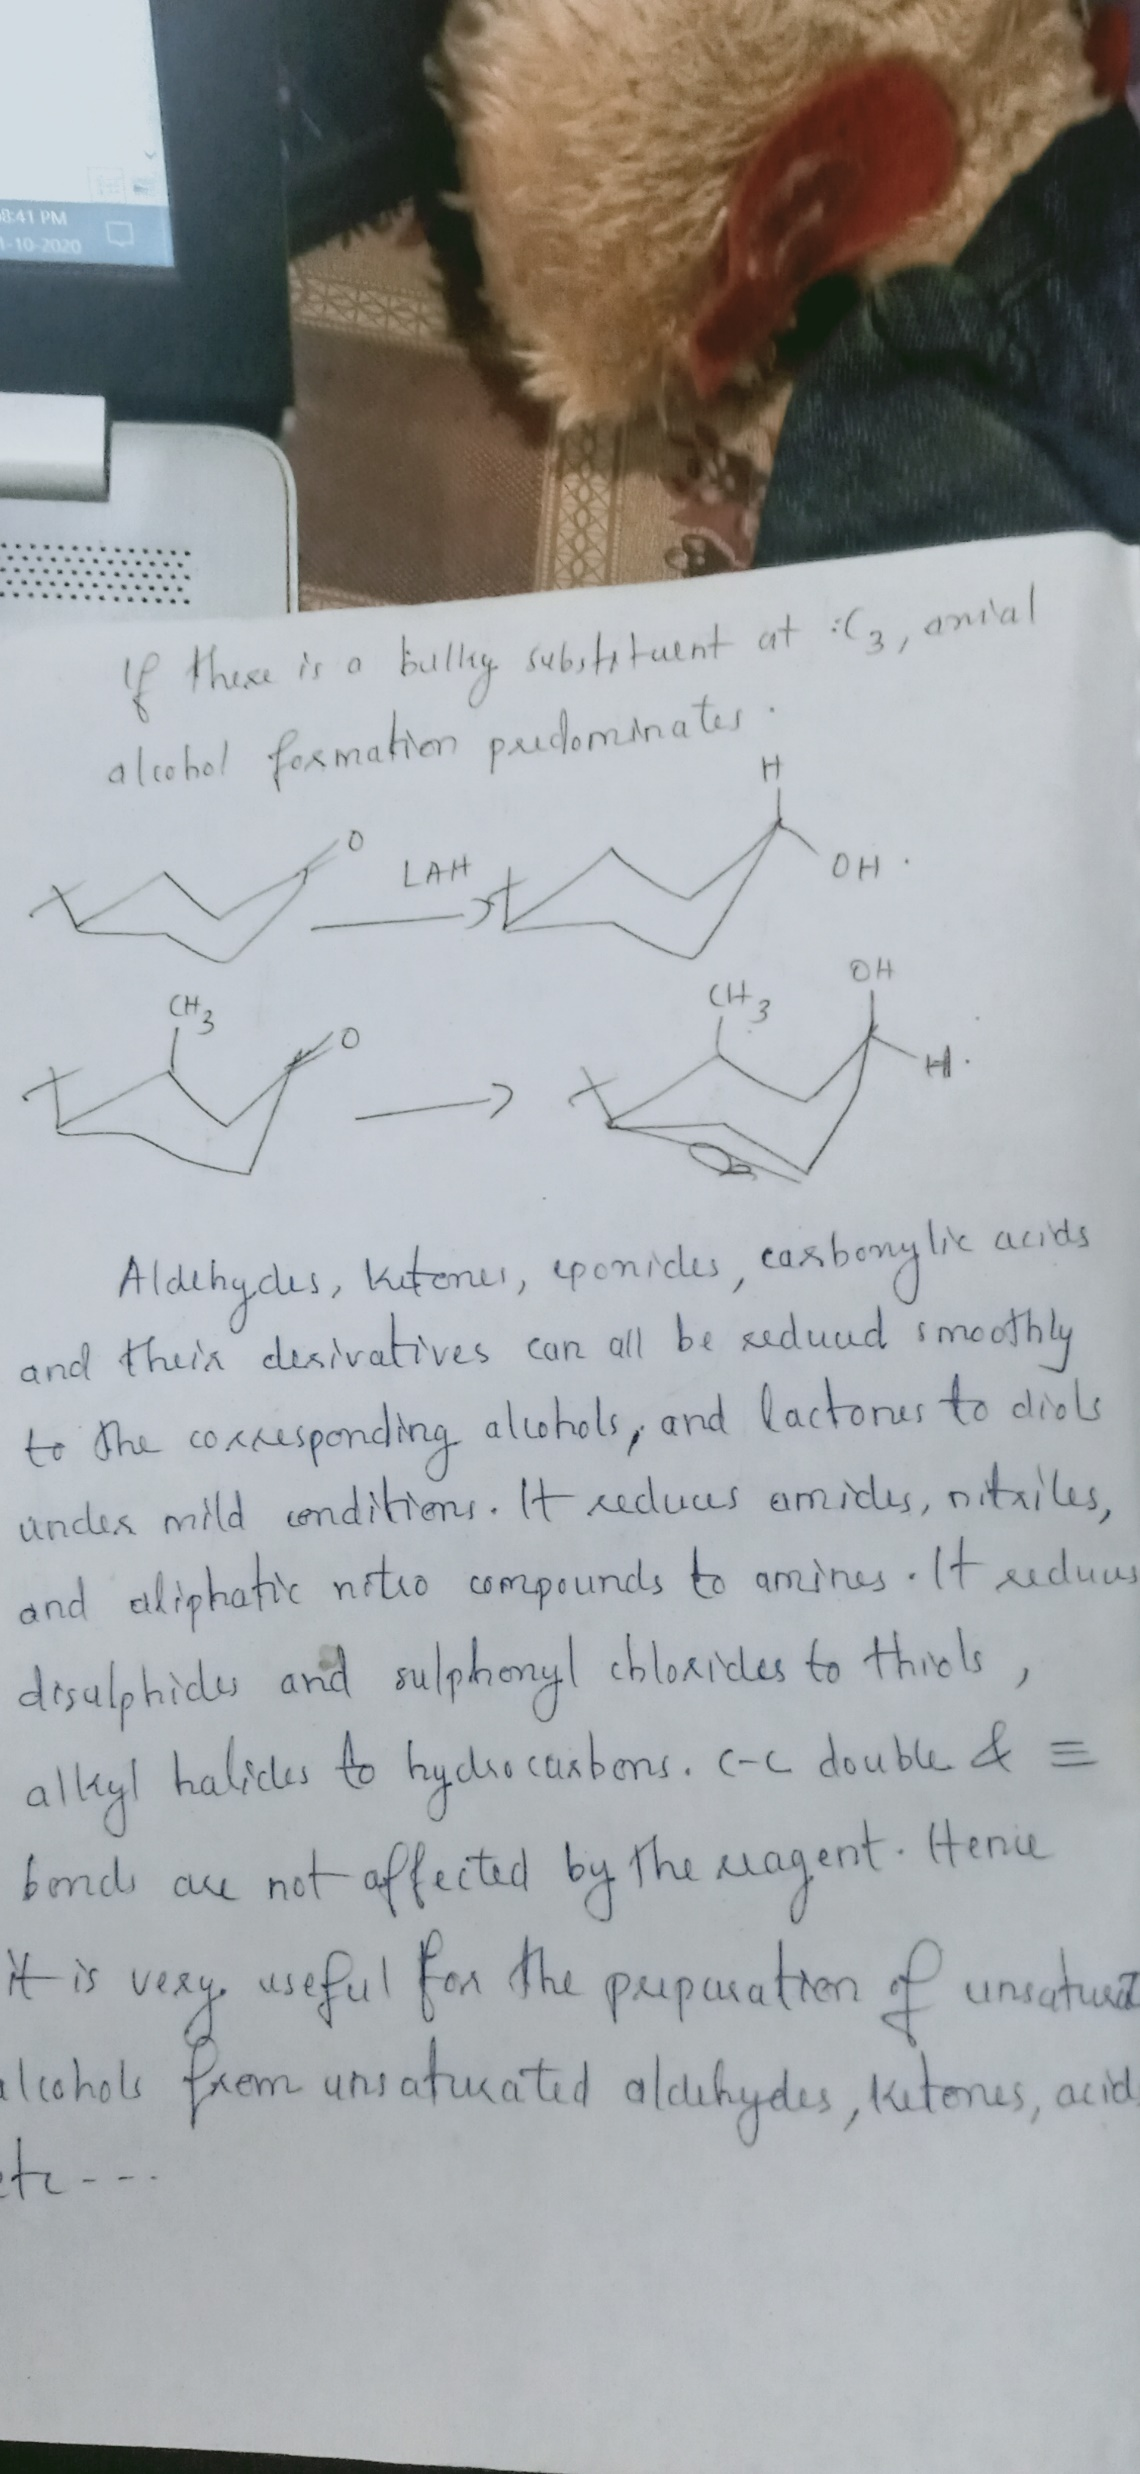 8:41 PM
1-10-2020
If there is a bulky substituent at :C3, axial
alcohol formation predominates.
H
O
LAH
OH .
CH3
O
CH3
OH
H.
Aldehydes, ketones, epoxides, carboxylic acids
and their derivatives can all be reduced smoothly
to the corresponding alcohols, and lactones to diols
under mild conditions. It reduces amides, nitriles,
and aliphatic nitro compounds to amines. It reduces
disulphides and sulphonyl chlorides to thiols,
alkyl halides to hydrocarbons. C-C double & ≡
bonds are not affected by the reagent. Hence
it is very useful for the preparation of unsaturat
alcohols from unsaturated aldehydes, ketones, acids
etc ---